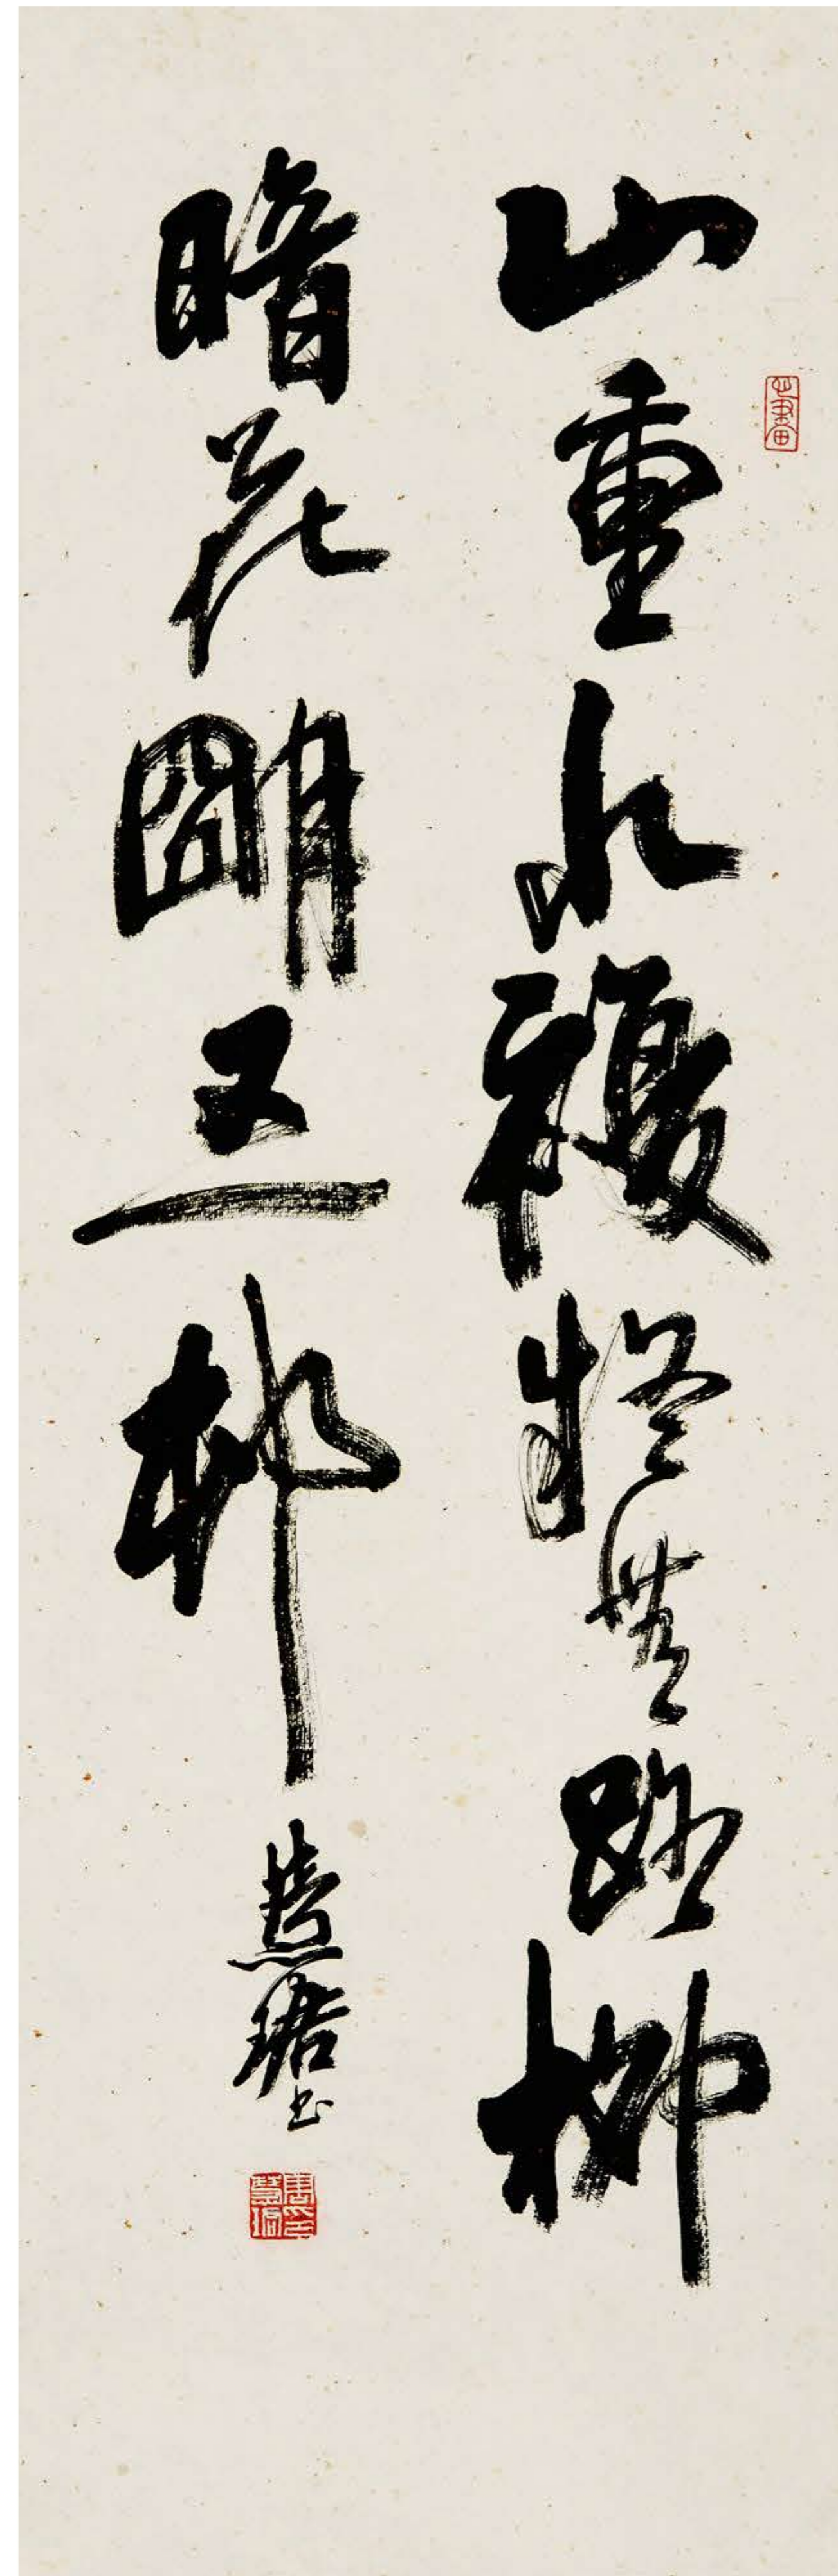 山重水複疑無路柳
暗花明又一邨
慧珺書